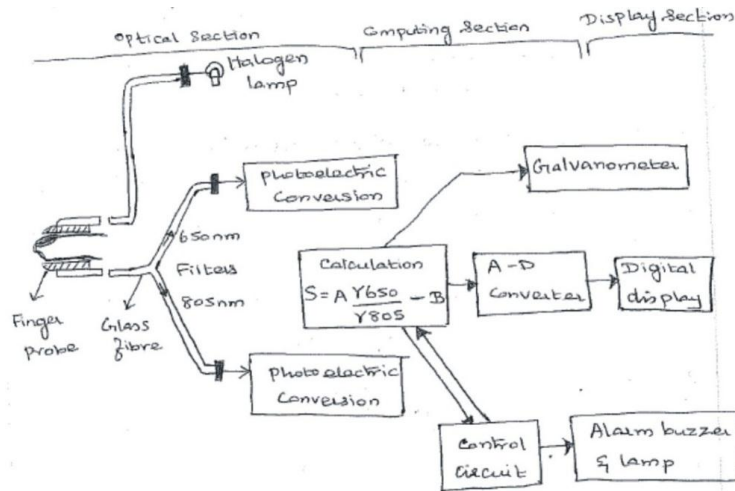 Optical Section
Computing Section
Display Section
Halogen
lamp
Photoelectric
Conversion
Galvanometer
650nm
Filters
805nm
Calculation
S=A γ650/γ805 - B
A-D
Converter
Digital
display
Finger
probe
Glass
fibre
Photoelectric
Conversion
Control
Circuit
Alarm buzzer
& lamp